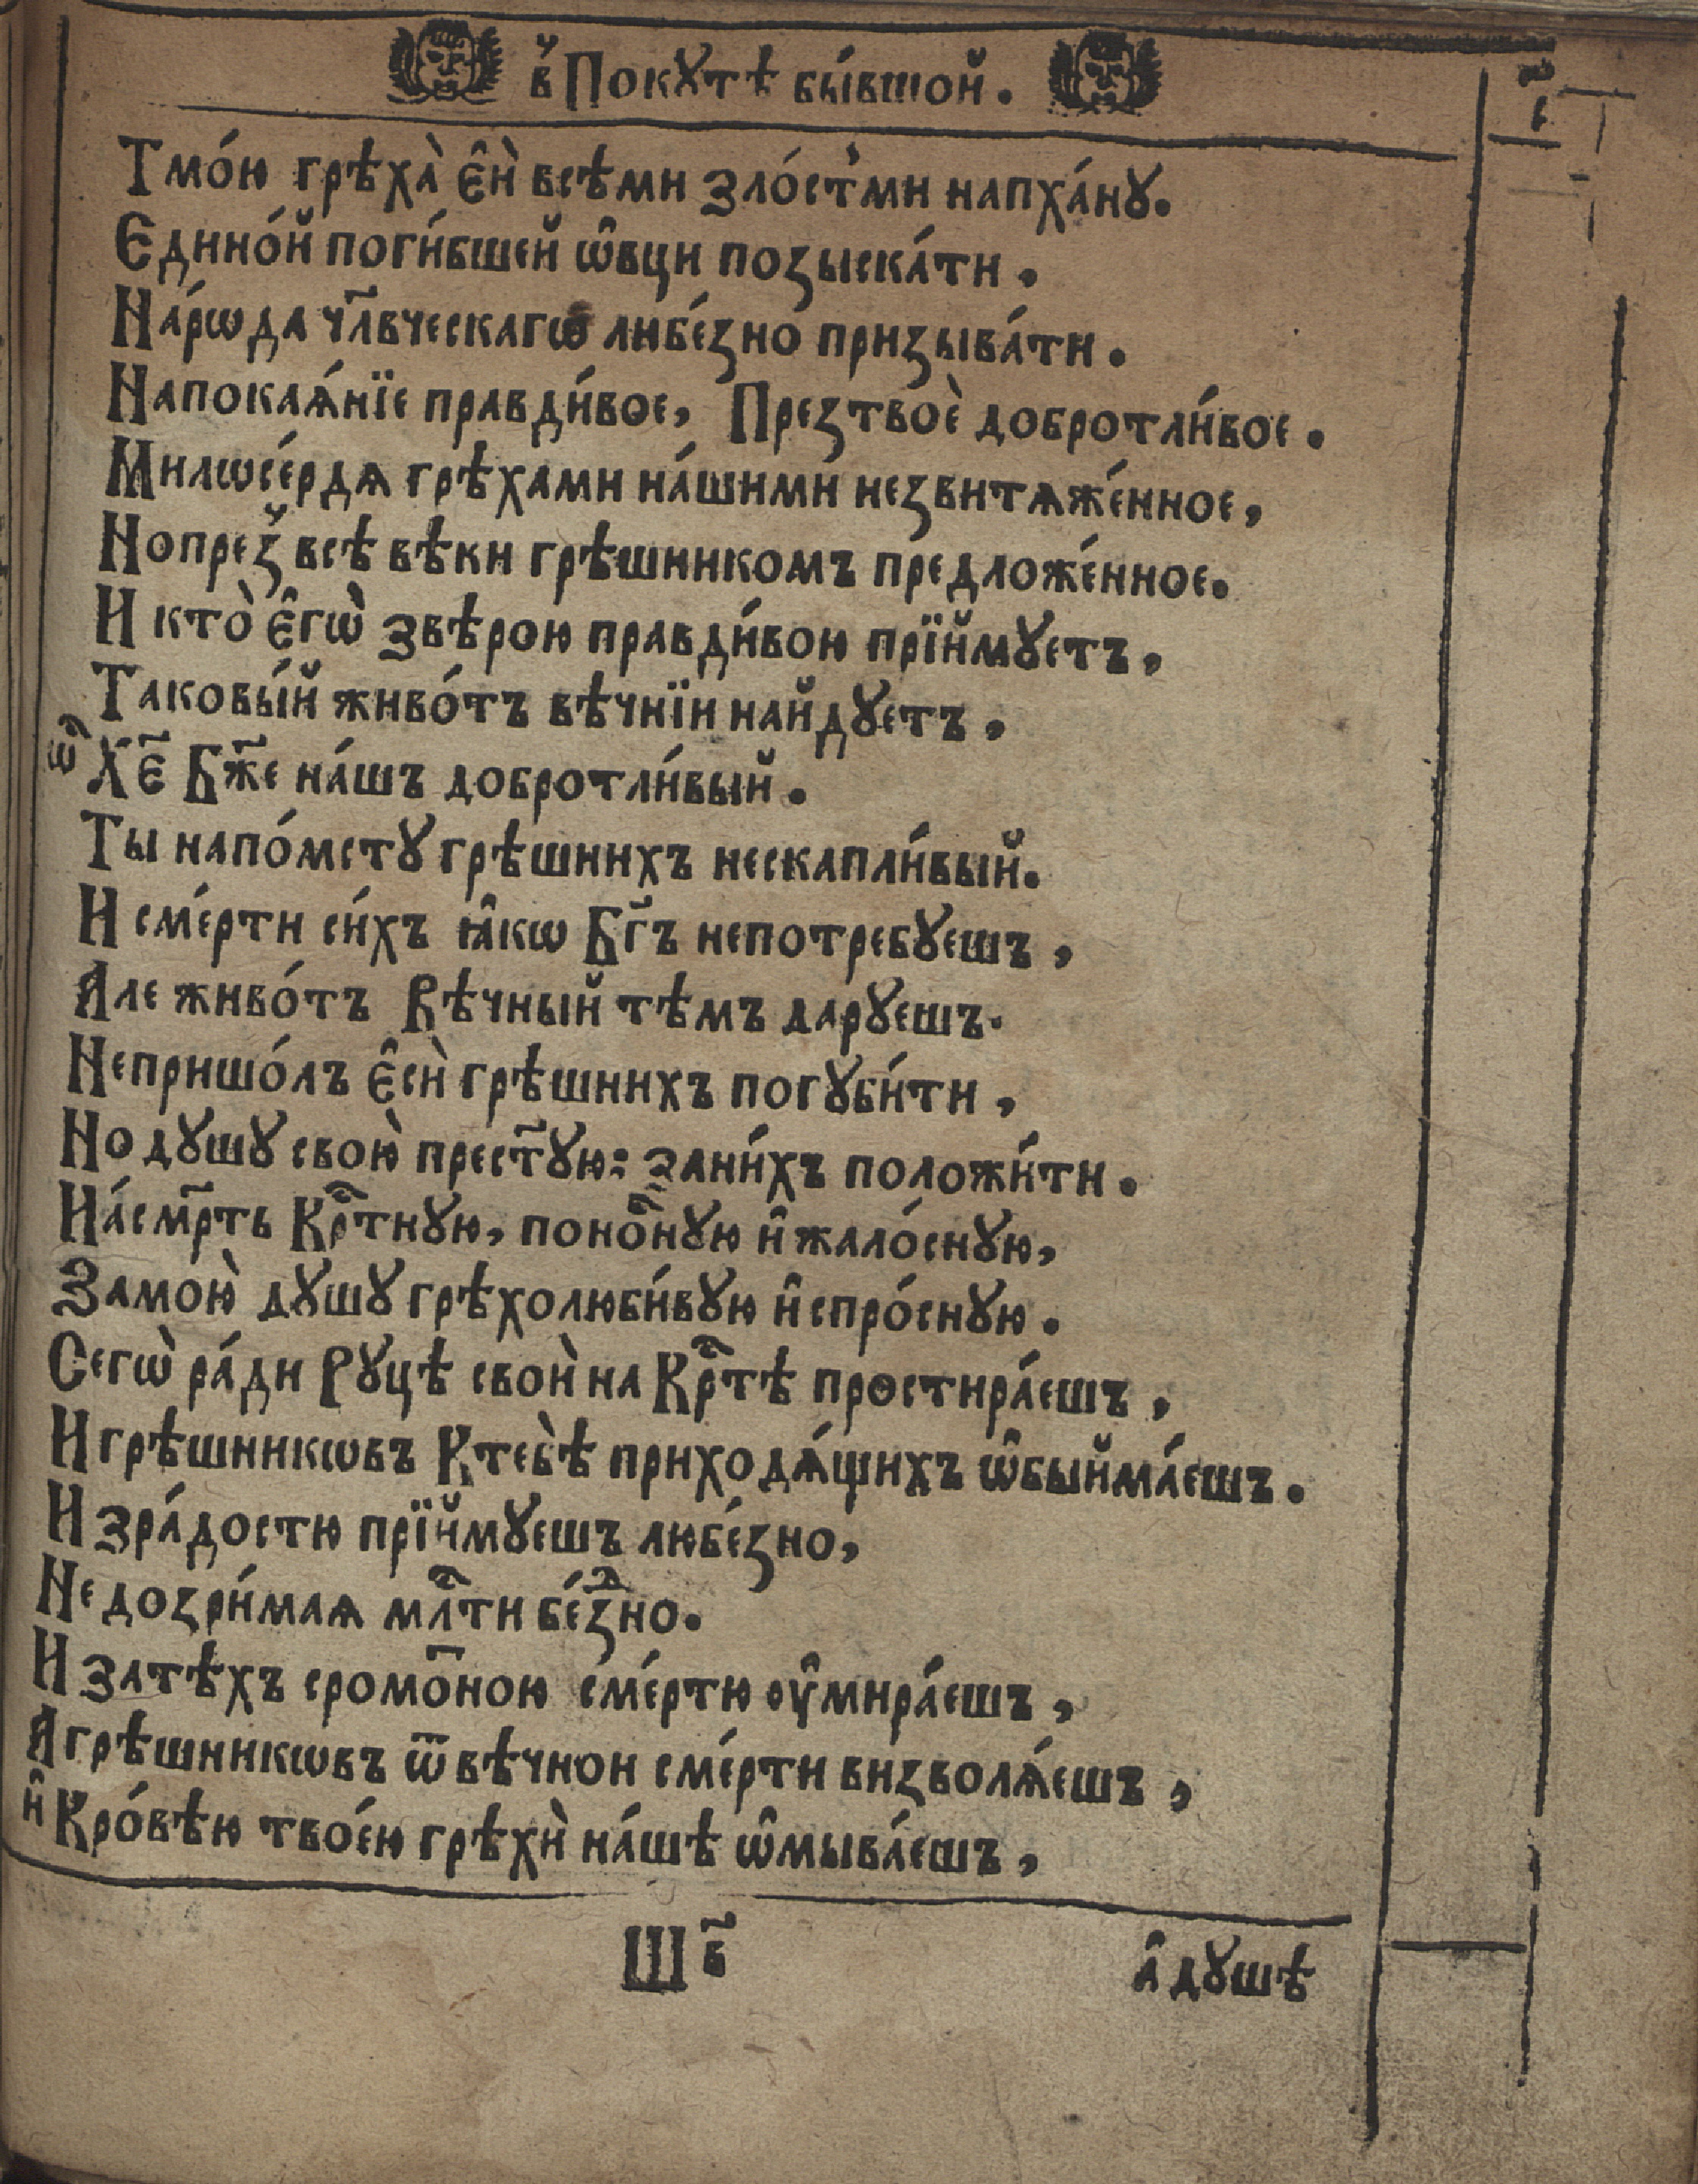 в̾ Покꙋтѣ бы́вшой.
Тмо́ю грѣха̀ є҆ѝ всѣми зло́ст҆ми напха́нꙋ.
Єдино́й поги́бшей ѡ҆вци позыска́ти.
На́рѡда чл҃вческагѡ либе́зно призыва́ти.
Напокаѧ́нїе правди́вое, Презтвоѐ добротли́вое.
Милѡсе́рдѧ грѣхами на́шими незвитѧже́нное,
Нопрез̾ всѣ вѣки грѣшникомъ предложе́нное.
И кто̀ є҆гѡ̀ звѣрою правди́вою прїймꙋетъ,
Таковы́й живо́тъ вѣчнїи найдꙋетъ,
ѡ҆ Хє҃ Бж҃е на́шъ добротли́вый.
Ты напо́мстꙋ грѣшнихъ нескапли́вый.
И сме́рти си́хъ ꙗ҆кѡ Бг҃ъ непотребꙋешъ,
Але живо́тъ Вѣчный тѣмъ дарꙋешъ.
Непришо́лъ є҆сѝ грѣшнихъ погꙋби́ти,
Но дꙋшꙋ свою̀ прест҃ꙋю: зани́хъ положи́ти.
На́смр҃ть Крⷭ҇тнꙋю, поноⷭ҇нꙋю и҆ жало́снꙋю,
Замою̀ дꙋшꙋ грѣхолюби́вꙋю и҆ спро́снꙋю.
Сегѡ̀ ра́ди Рꙋцѣ своѝ на Крⷭ҇тѣ прѳстира́ешъ,
И грѣшникѡвъ Ктебѣ̀ приходѧ́щихъ ѡ҆быйма́ешъ.
И зра́достю прїймꙋешъ любе́зно,
Недозри́маѧ млⷭ҇ти бе́зⷣно.
И затѣхъ сромо҃ною сме́ртю ѹ҆мира́ешъ,
А грѣшникѡвъ ѿвѣчнои сме́рти визволѧ́ешъ,
и҆ Кро́вѣю твое́ю грѣхѝ на́шѣ ѡ҆мыва́ешъ,
Ш в҃
а҆ дꙋшѣ